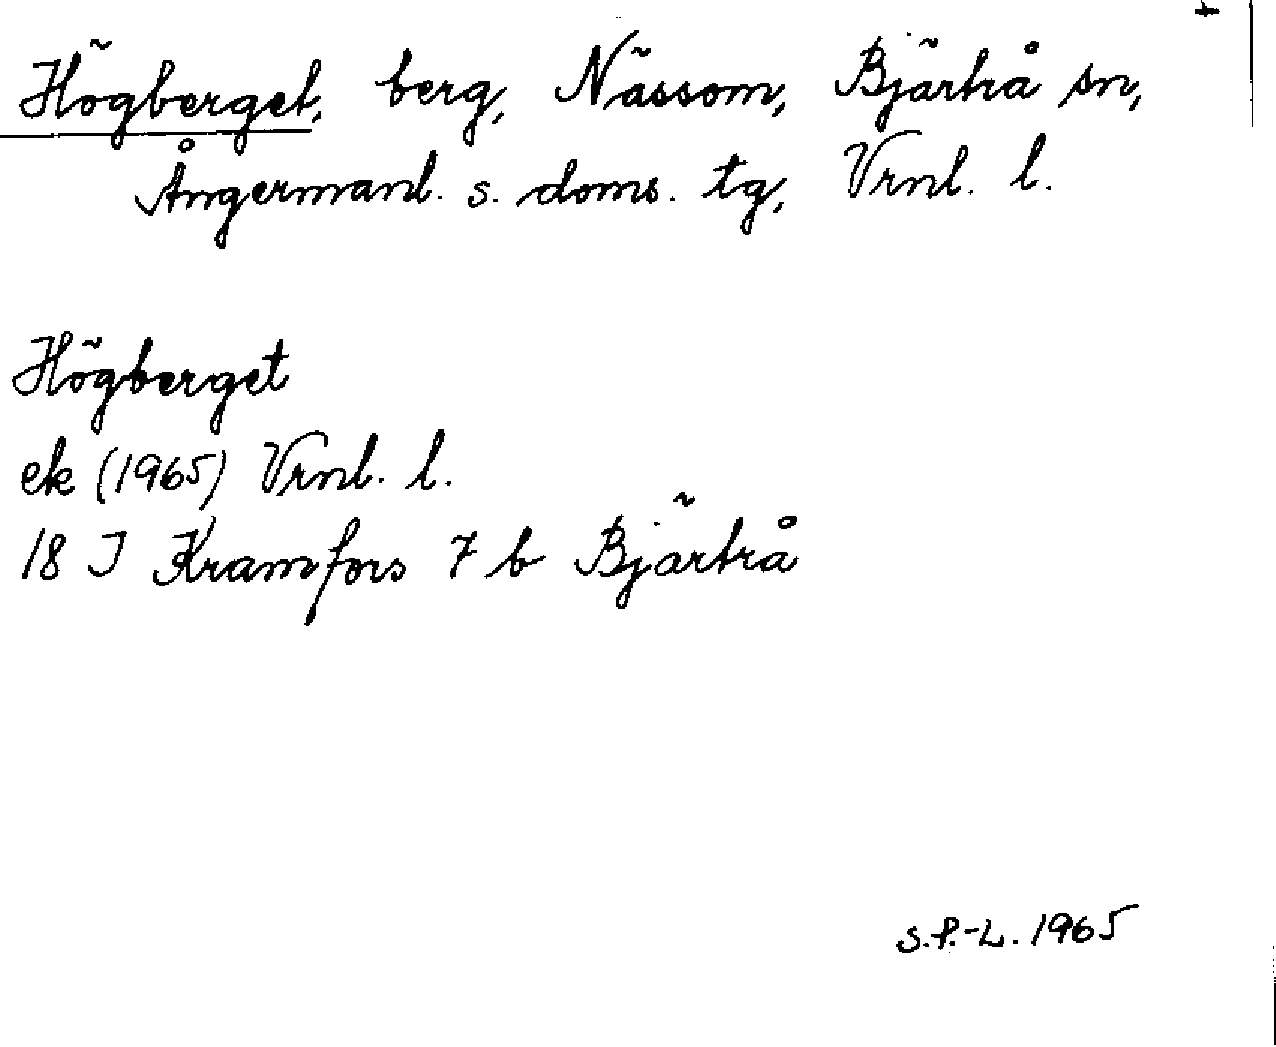 Högberget, berg, Nässom, Bjärtrå sn,
Ångermanl. s. doms. tg, Vrnl. l.
Högberget
ek (1965) Vrnl. l.
18 J Kramfors 7 b Bjärtrå
S.P.-L. 1965